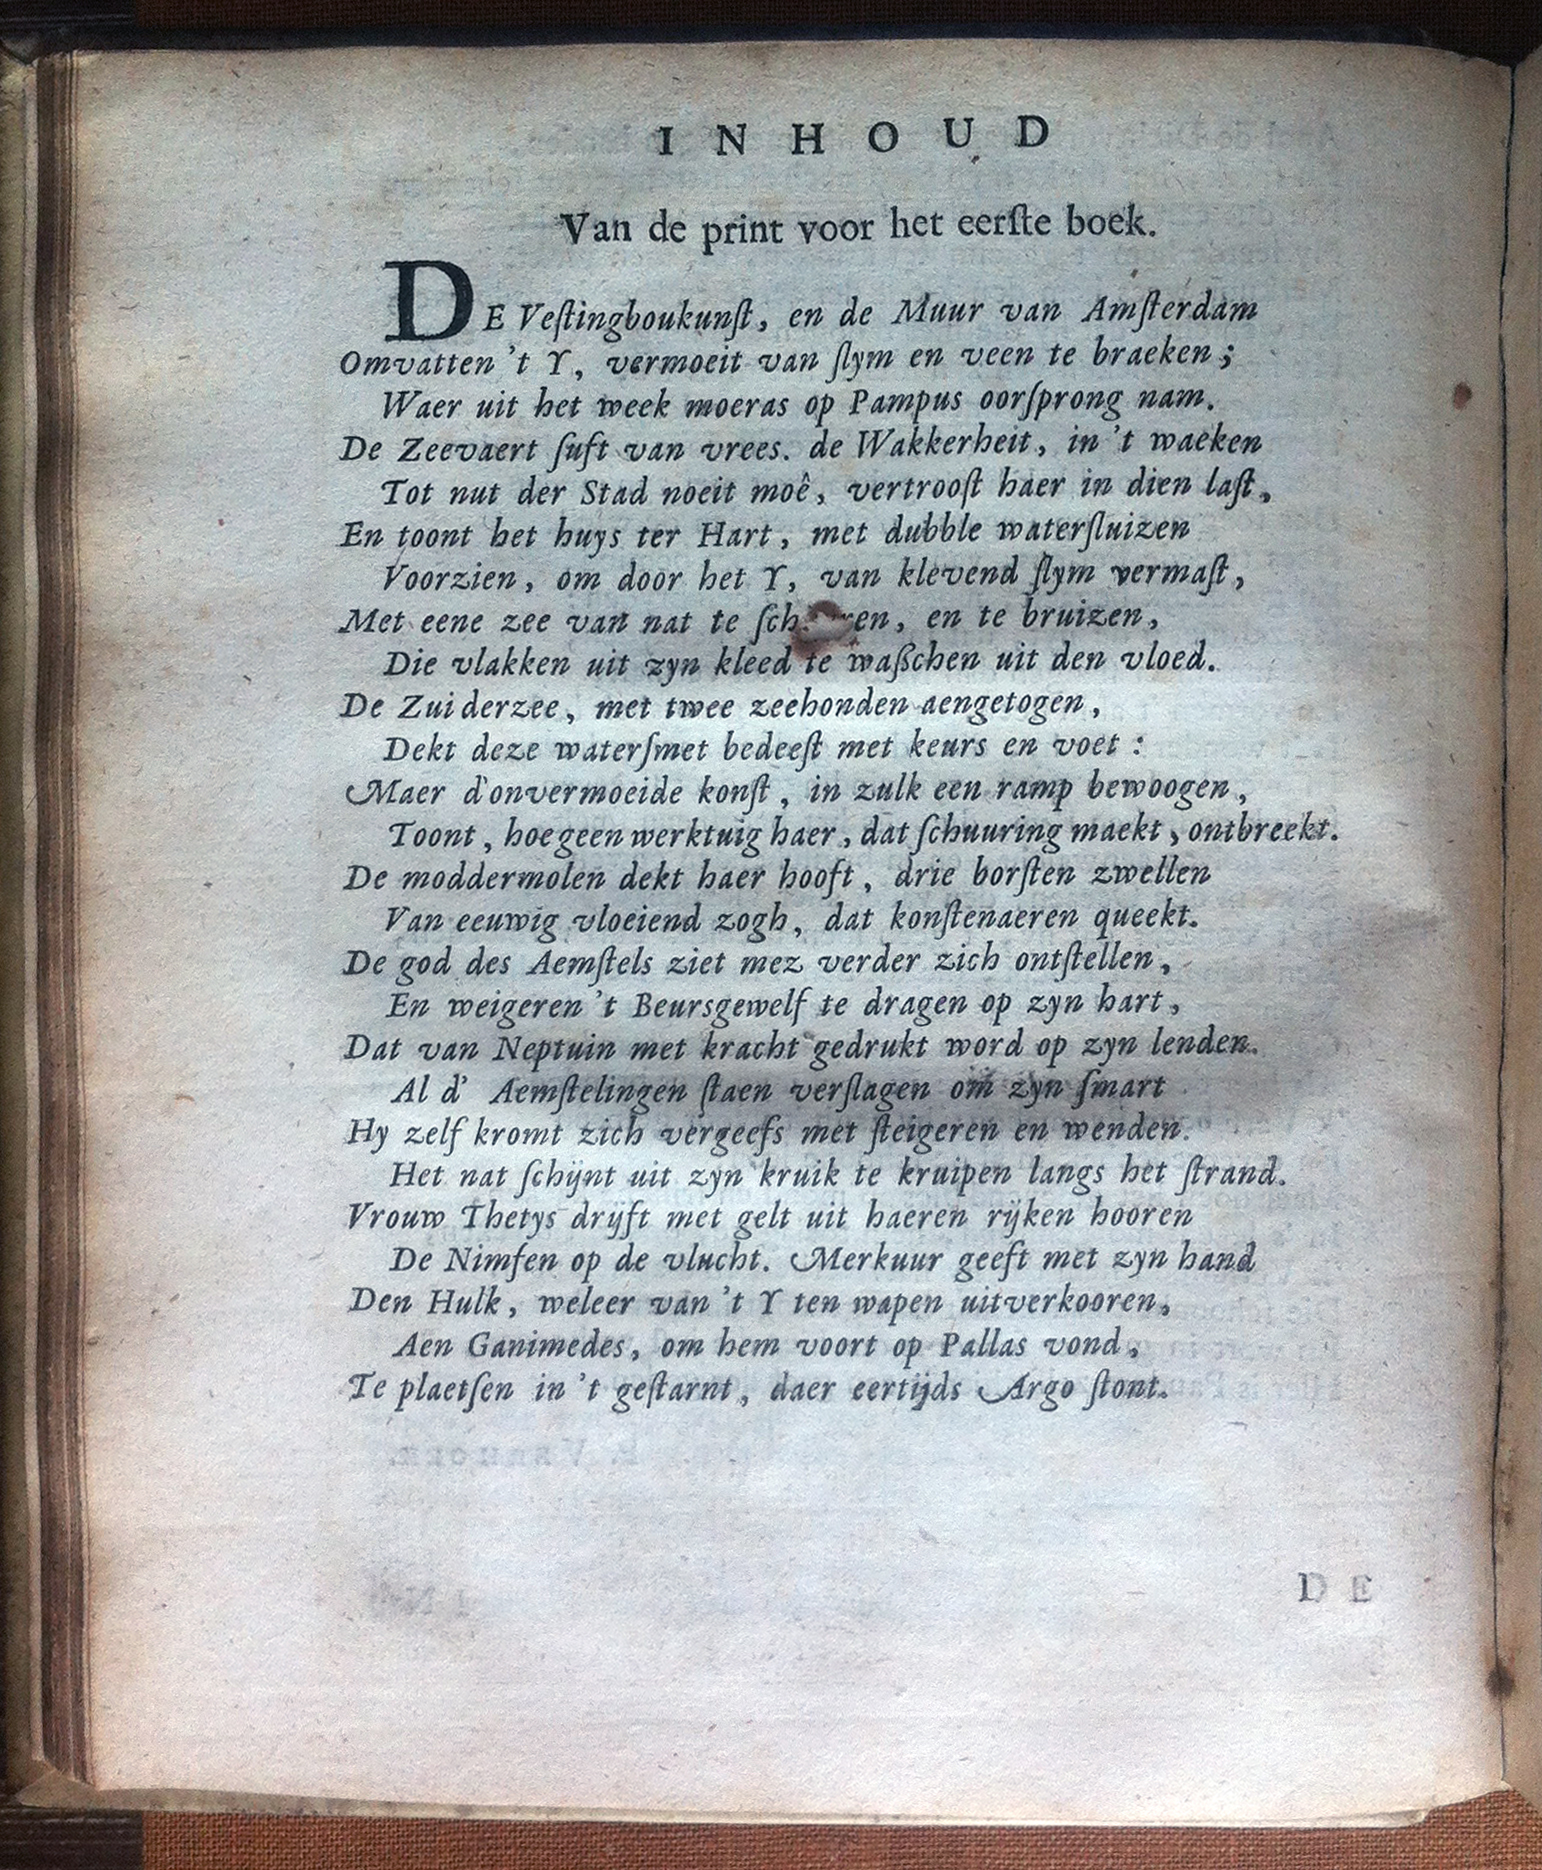 INHOUD
Van de print voor het eerſte boek.
DE Veſtingboukunſt, en de Muur van Amſterdam
Omvatten 't Y, vermoeit van ſlym en veen te braeken;
Waer uit het week moeras op Pampus oorſprong nam.
De Zeevaert ſuft van vrees. de Wakkerheit, in 't waeken
Tot nut der Stad noeit moê, vertrooſt haer in dien laſt,
En toont het huys ter Hart, met dubble waterſluizen
Voorzien, om door het Y, van klevend ſlym vermaſt,
Met eene zee van nat te en te bruizen,
Die vlakken uit zyn kleed te waßchen uit den vloed.
De Zuiderzee, met twee zeehonden aengetogen,
Dekt deze waterſmet bedeeſt met keurs en voet:
Maer d'onvermoeide konſt, in zulk een ramp bewoogen,
Toont, hoe geen werktuig haer, dat ſchuuring maekt, ontbreekt.
De moddermolen dekt haer hooft, drie borſten zwellen
Van eeuwig vloeiend zogh, dat konſtenaeren queekt.
De god des Aemſtels ziet mez verder zich ontſtellen,
En weigeren 't Beursgewelf te dragen op zyn hart,
Dat van Neptuin met kracht gedrukt word op zyn lenden.
Al d' Aemſtelingen ſtaen verſlagen om zyn ſmart
Hy zelf kromt zich vergeefs met ſteigeren en wenden.
Het nat ſchijnt uit zyn kruik te kruipen langs het ſtrand.
Vrouw Thetys drijft met gelt uit haeren rijken hooren
De Nimfen op de vlucht. Merkuur geeft met zyn hand
Den Hulk, weleer van 't Y ten wapen uitverkooren,
Aen Ganimedes, om hem voort op Pallas vond,
Te plaetſen in 't geſtarnt, daer eertijds Argo ſtont.
DE